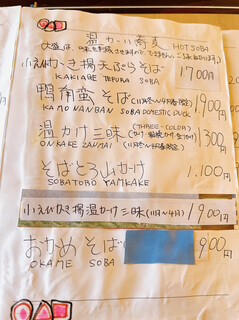 温かい蕎麦 HOT SOBA
小えびかき揚天ぷらそば 1700円
KAKIAGE TEPURA SOBA
鴨南蛮そば (11月〜4月頃限定) 1,900円
KAMO NANBAN SOBA DOMESTIC DUCK
温かけ三味 (THREE-COLOR) 1300円
ONKAKE ZANMAI (11月〜4月頃限定)
そばとろ山かけ 1,100円
SOBATORO YAMKAKE
小えびかき揚温かけ三味(11月〜4月) 1900円
おかめそば 900円
OKAME SOBA